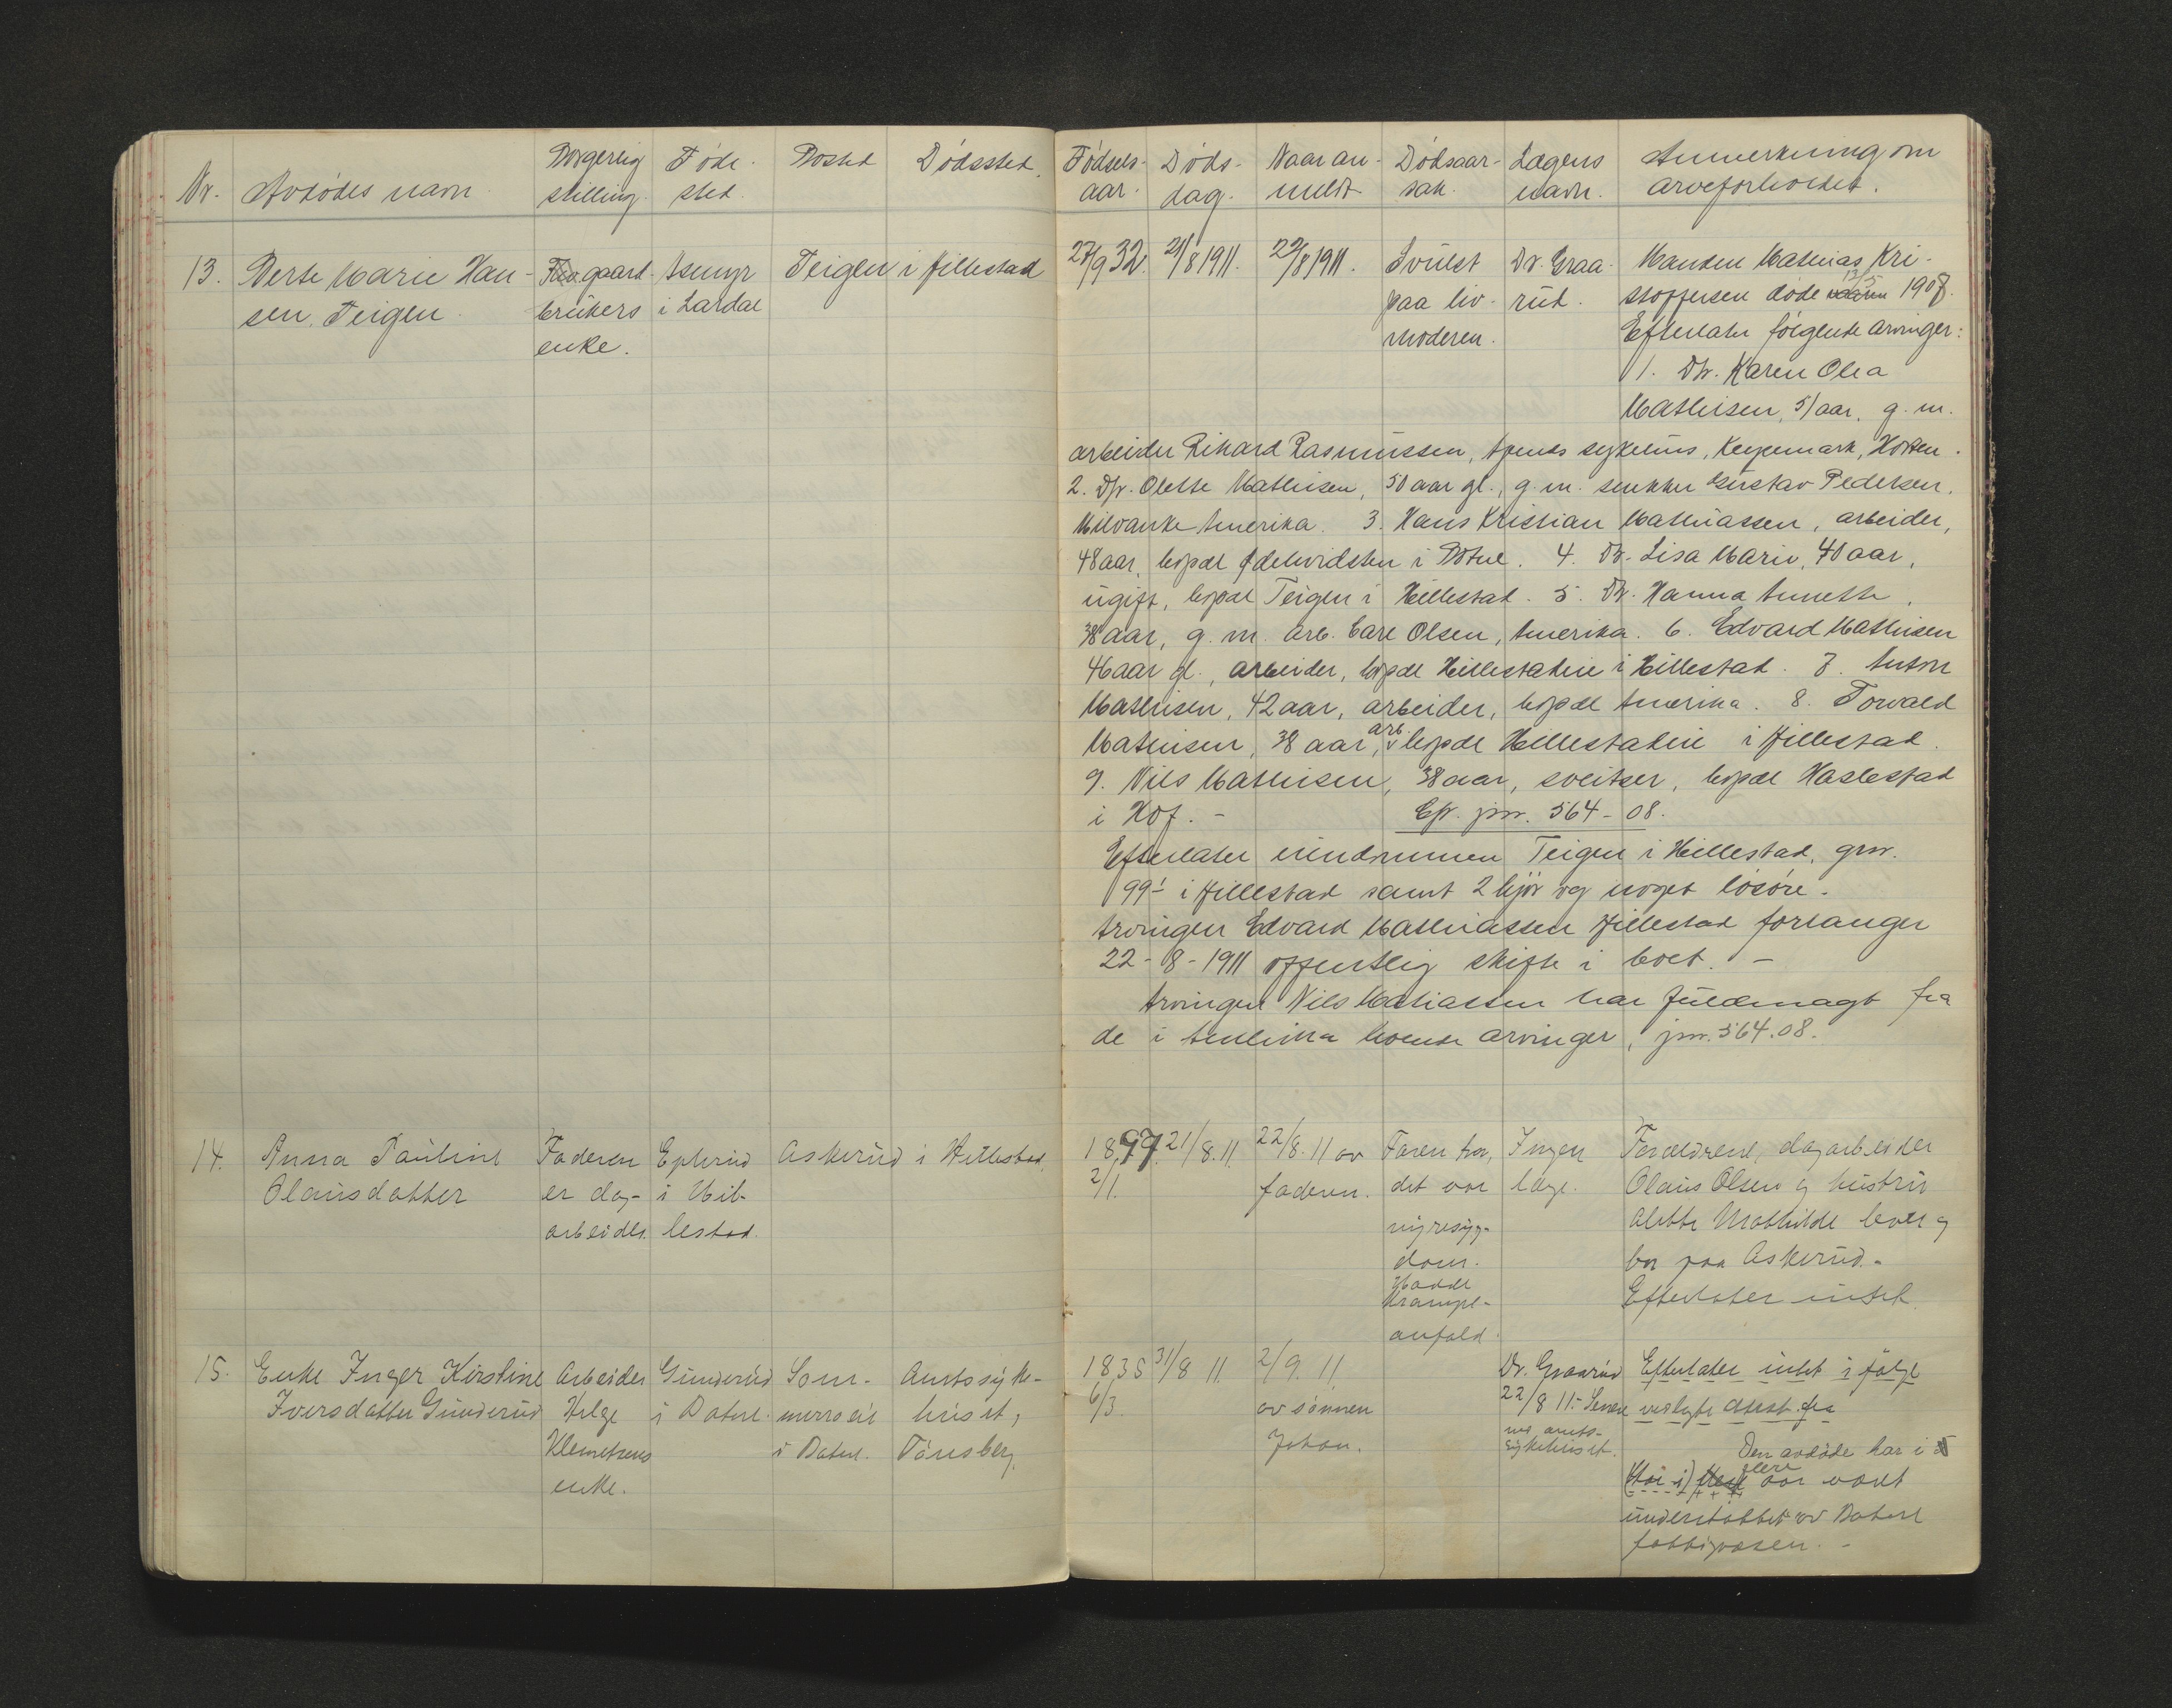 Nr. Avdødes navn. Borgerlig stilling. Føde-sted. Bosted Dødssted.
Fødsels-aar. Døds-dag. Naar an-meldt Dødsaar-sak. Lægens navn. Anmerkning om arveforholdet.
13. Berte Marie Han-
sen, Teigen.
gaard-
brukers
enke.
Asmyr
i Lardal
Teigen i Hillestad
27/9 32. 21/8 1911. 22/8 1911.
Svulst
paa liv-
moderen.
Dr. Graa-
rud.
Manden Mathias Kri-
stoffersen døde 12/5 1908.
Efterlater følgende arvinger:
1. Dtr. Karen Olea
Mathisen, 51 aar, g. m.
arbeider Rikard Rasmussen, sykehus, Horten.
2. Dtr. Olette Mathisen, 50 aar gl., g. m. snekker Gustav Pedersen,
Milvauke Amerika. 3. Hans Kristian Mathiassen, arbeider,
48 aar, bopæl i Botne. 4. Dtr. Lisa Marie, 40 aar,
ugift, bopæl Teigen i Hillestad. 5. Dtr. Hanna Annette,
38 aar, g. m. arb. Carl Olsen, Amerika. 6. Edvard Mathisen
46 aar gl., arbeider, bopæl Hillestadeie i Hillestad. 7. Anton
Mathisen, 42 aar, arbeider, bopæl Amerika. 8. Torvald
Mathisen, 38 aar, arb. bopæl Hillestadeie i Hillestad.
9. Nils Mathisen, 38 aar, sveitser, bopæl Haslestad
i Hof. - Cfr. jnr. 564-08.
Efterlater eiendommen Teigen i Hillestad, gnr.
99 1 i Hillestad samt 2 kjør og noget løsøre.
Arvingen Edvard Mathiassen Hillestad forlanger
22-8-1911 offentlig skifte i boet. -
Arvingen Nils Mathiassen har fuldmagt fra
de i Amerika boende arvinger, jnr. 564.08.
14. Anna Pauline
Olausdatter
Faderen
er dag-
arbeider.
i Hil-
lestad.
Askerud i Hillestad.
1897. 2/1. 21/8.11. 22/8.11 av
faderen.
Faren tror,
det var
nyresyg-
dom.
Hadde
krampe-
anfald.
Ingen
læge.
Forældrene, dagarbeider
Olaus Olsen og hustru
Alette Mathilde lever og
bor paa Askerud. -
Efterlater intet.
15. Enke Inger Kirstine
Iversdatter Gunderud
Arbeider
Helge
Klemetsens
enke.
Gunderud
i Botne.
i Botne.
Amtssyke-
huset,
Tønsberg.
1835 6/3. 31/8 11. 2/9. 11.
av sønnen
Johan.
Dr. Graarud
22/8 11.
ved amts-
sykehuset.
Efterlater intet i følge
vedlagte attest fra
Den avdøde har i
flere aar været
understøttet av Botne
fattigvæsen. -